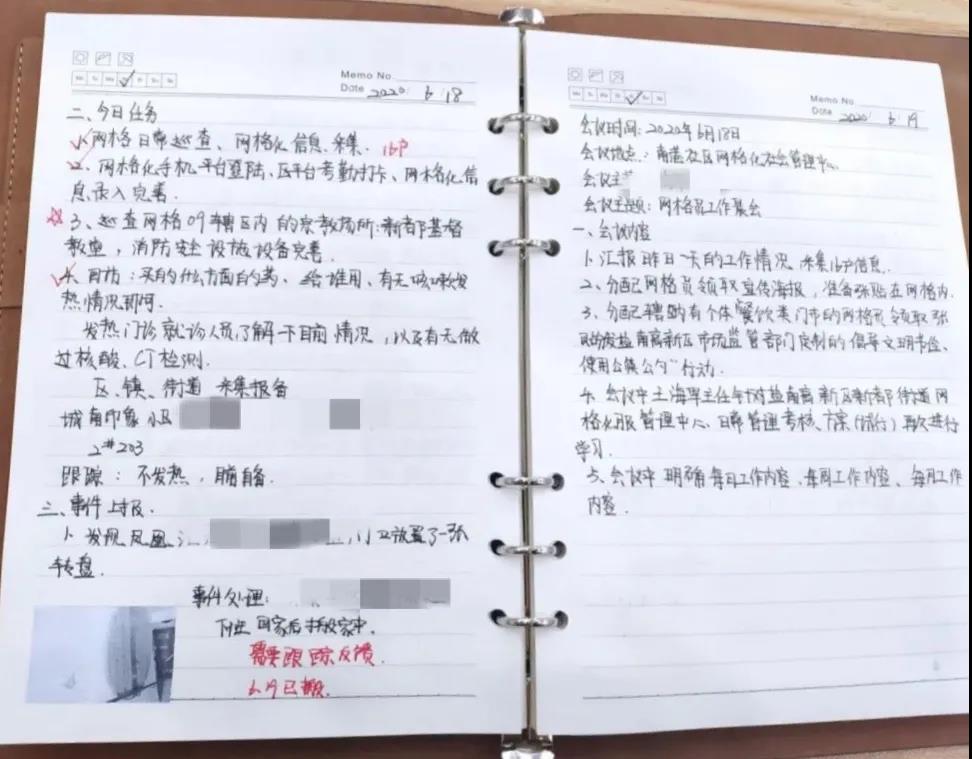 Memo No.
Date 2020/ 6/ 18
二、今日任务
1、网格日常巡查、网格化信息采集. 16户
2、网格化手机平台登陆、区平台考勤打卡、网格化信
息录入完善.
☆ 3、巡查网格09辖区内的宗教场所:新都基督
教堂,消防安全设施设备完善.
4、 买的什么方面的药、给谁用、有无咳嗽发
热情况
发热门诊就诊人员了解一下目前情况,以及有无做
过核酸、CT检测.
区、镇、街道 采集报备
城南印象小区
2#203
跟踪:不发热,
三、事件上报.
1、发现凤凰 门口放置了一张
转盘.
事件处理:
回家后 家中.
需要跟踪反馈.
6.19已搬.
Memo No.
Date 2020/ 6/ 19
会议时间:2020年6月18日
会议地点: 社区网格化社会管理中心.
会议主
会议主题:网格员工作集会
一、会议内容
1、汇报昨日一天的工作情况 采集16户信息.
2、分配网格员领取宣传海报,准备张贴在网格内.
3、分配辖区内有个体餐饮类门市的网格员领取张
贴 盐南高新区市场监管部门定制的“倡导文明节俭、
使用公筷公勺”行动.
4、会议中王海军主任针对盐南高新区新都街道网
格化服管理中心、日常管理考核、方案(试行)再次进行
学习.
5、会议中明确每日工作内容、每周工作内容、每月工作
内容.